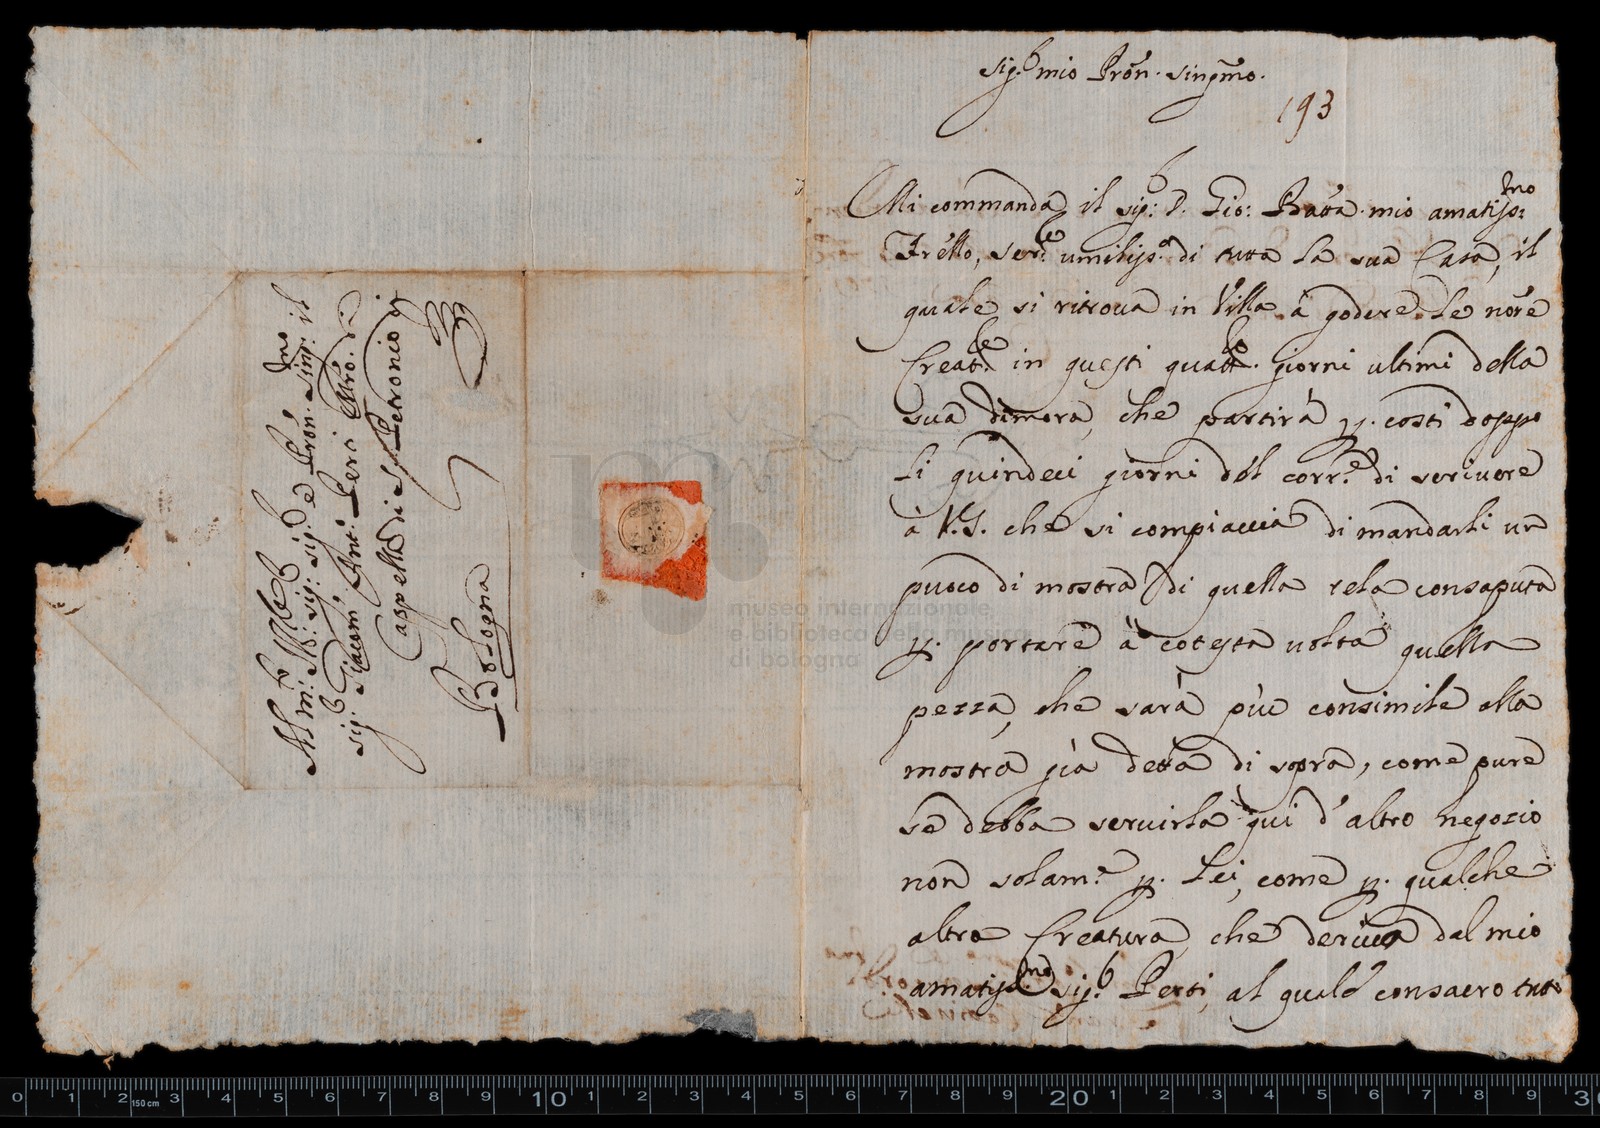 Sig.r mio Pron. Singmo.
193
Mi commanda il sig.r D. Gio: Batta mio amatiss:mo
Frello, ser.re umiliss.o di tutta la sua Casa, il
quale si ritroua in Villa à godere le nore
Creat.re in questi quatt.o giorni ultimi della
sua dimora, che partirà p. costì doppo
li quindeci giorni del corr.e di scriuere
à V.S. che si compiaccia di mandarli un
puoco di mostra di quella tela consaputa
p. portare à cotesta uolta quella
pezza, che sarà più consimile alla
mostra già detta di sopra, come pure
se debba seruirla quì d'altro negozio
non solam.e p. Lei, come p. qualche
altra Creatura, che deriua dal mio
amatiss.mo sig.r Perti, al quale consacro tutt
All m: Ill.re Sig: Sig.r e Pron. Sing:mo il
Sig.r Giacom. Ant: Perti Mro. di
Cappella di S. Petronio
Bologna
museo internazionale
e biblioteca della musica
di bologna
0 1 2 150 cm 3 4 5 6 7 8 9 10 1 2 3 4 5 6 7 8 9 20 1 2 3 4 5 6 7 8 9 3